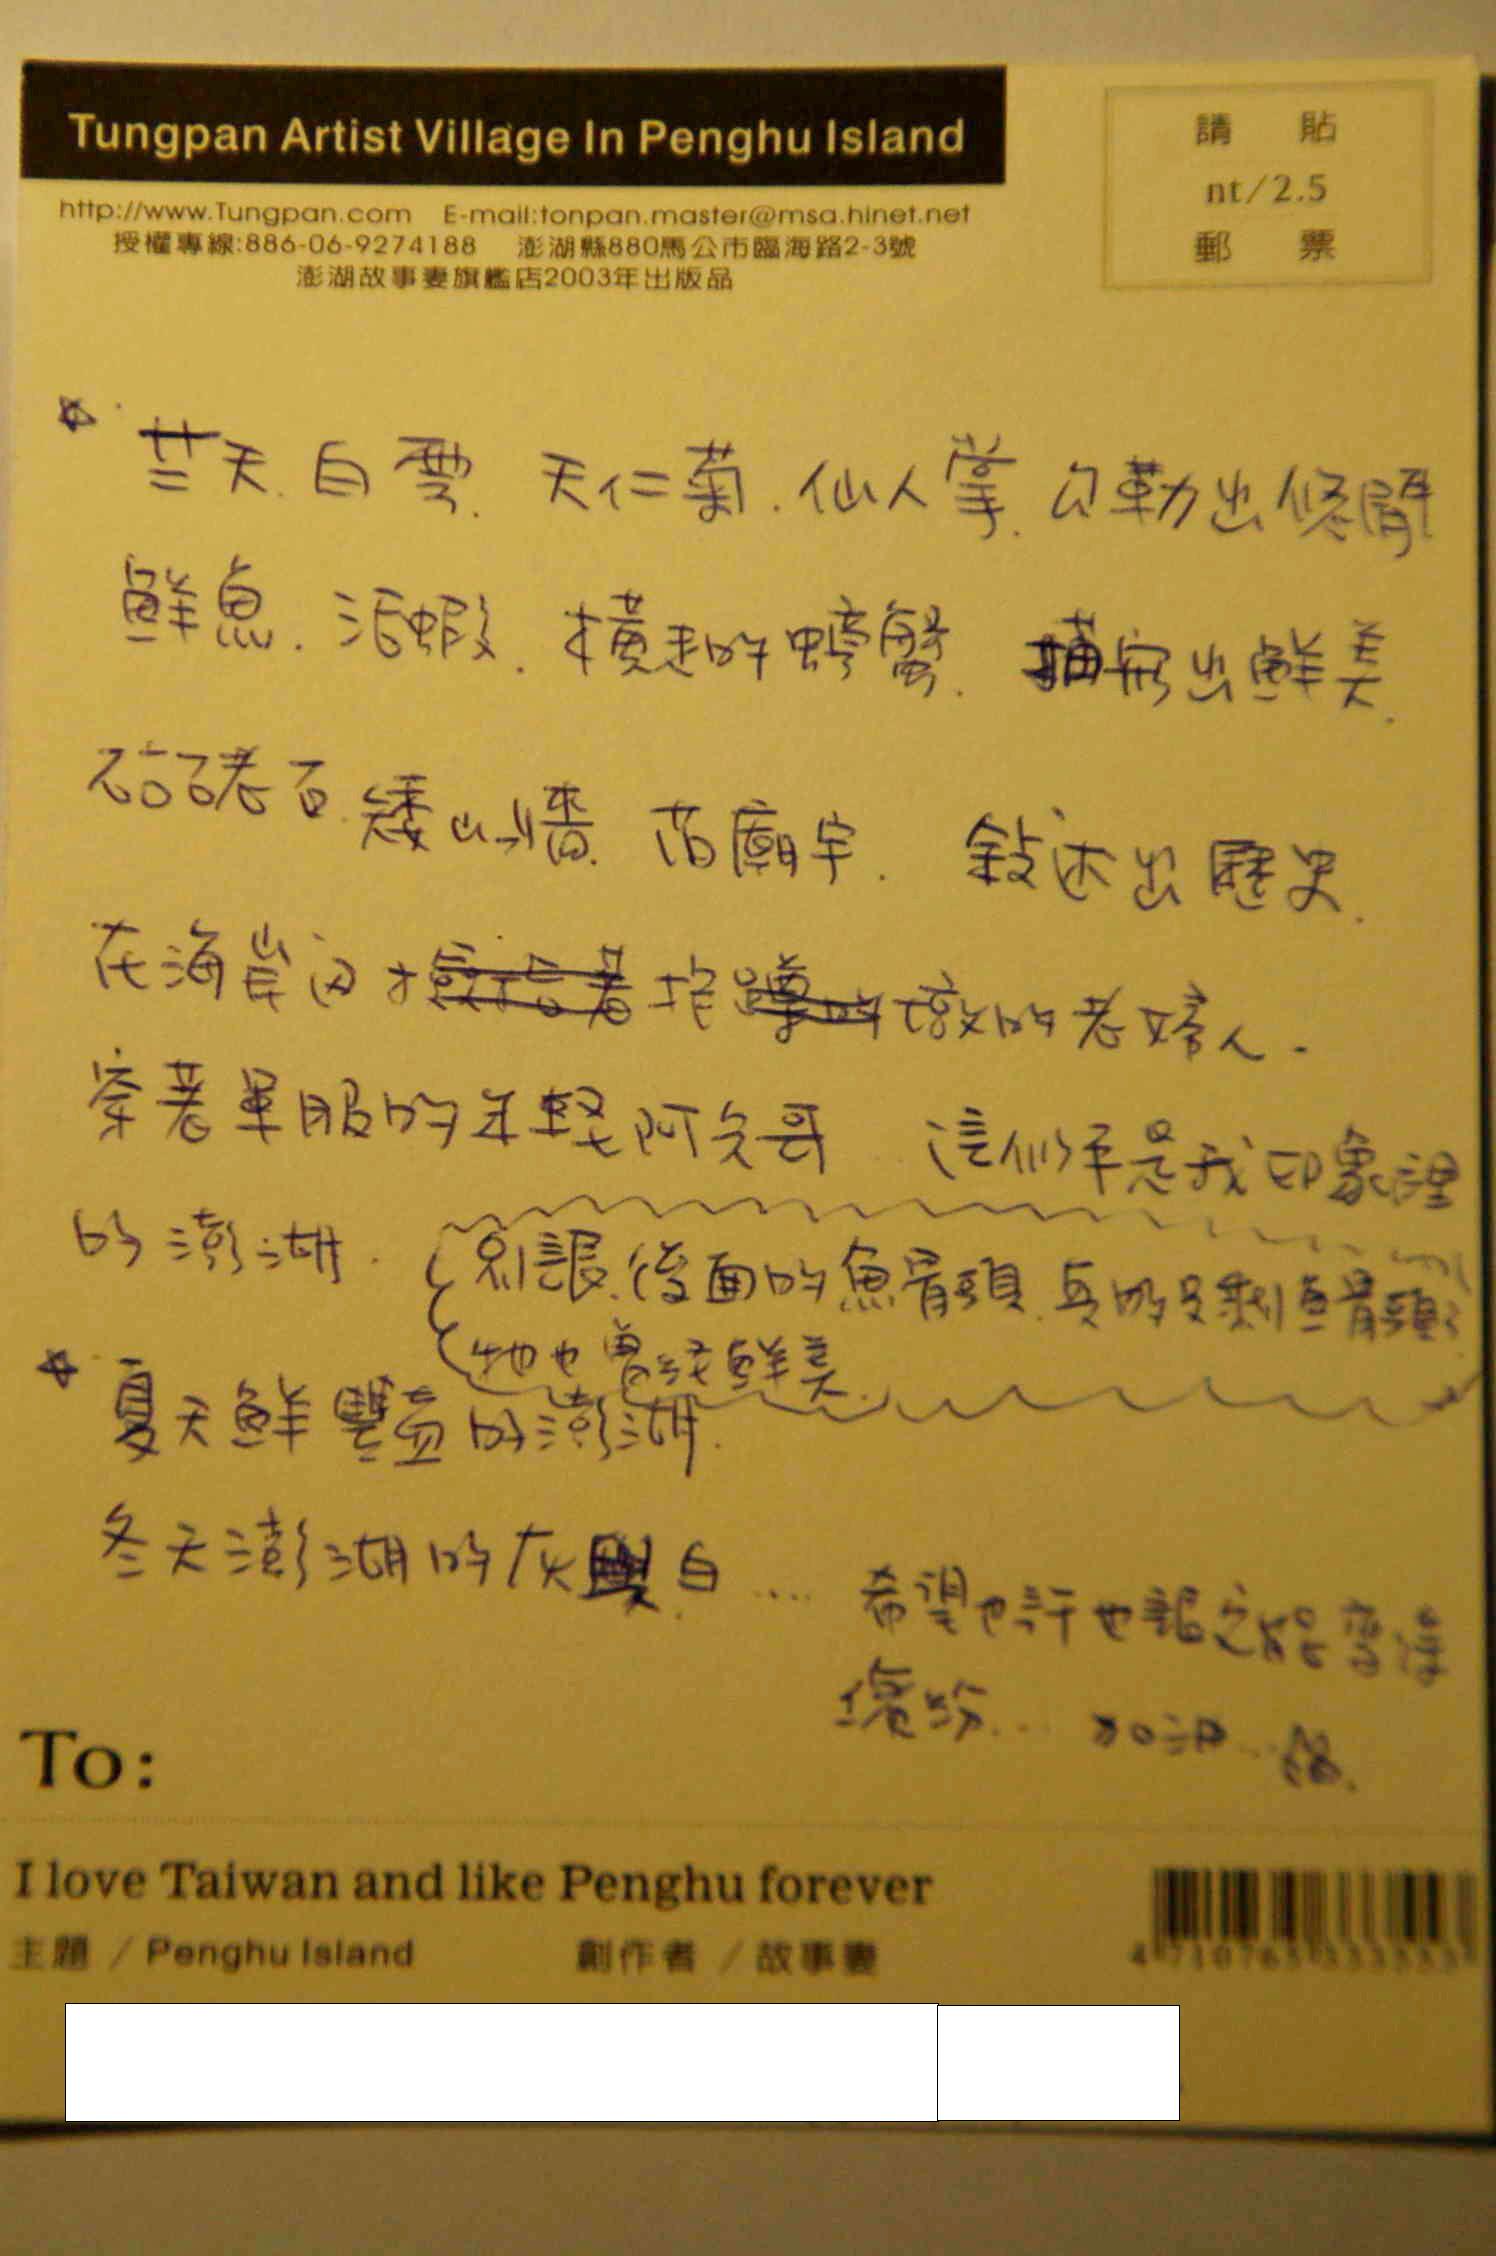 Tungpan Artist Village In Penghu Island
請 貼
nt/2.5
郵 票
http://www.Tungpan.com E-mail:tonpan.master@msa.hinet.net
授權專線:886-06-9274188 澎湖縣880馬公市臨海路2-3號
澎湖故事妻旗艦店2003年出版品
天. 白雲. 天仁菊. 仙人掌. 勾勒出悠閒
鮮魚. 活蝦. 橫走的螃蟹. 描寫出鮮美.
硓石. 矮山牆. 古廟宇. 敘述出歷史.
在海岸邊 挖 的老婦人.
穿著軍服的年輕阿兵哥 這似乎是我印象裡
的澎湖.
別誤後面的魚骨頭. 真的只剩魚骨頭
牠也曾經鮮美.
夏天鮮豔的澎湖.
冬天澎湖的灰與白....
希望也許也 能變得
繽紛... 加油...
To:
I love Taiwan and like Penghu forever
主題 / Penghu Island 創作者 / 故事妻